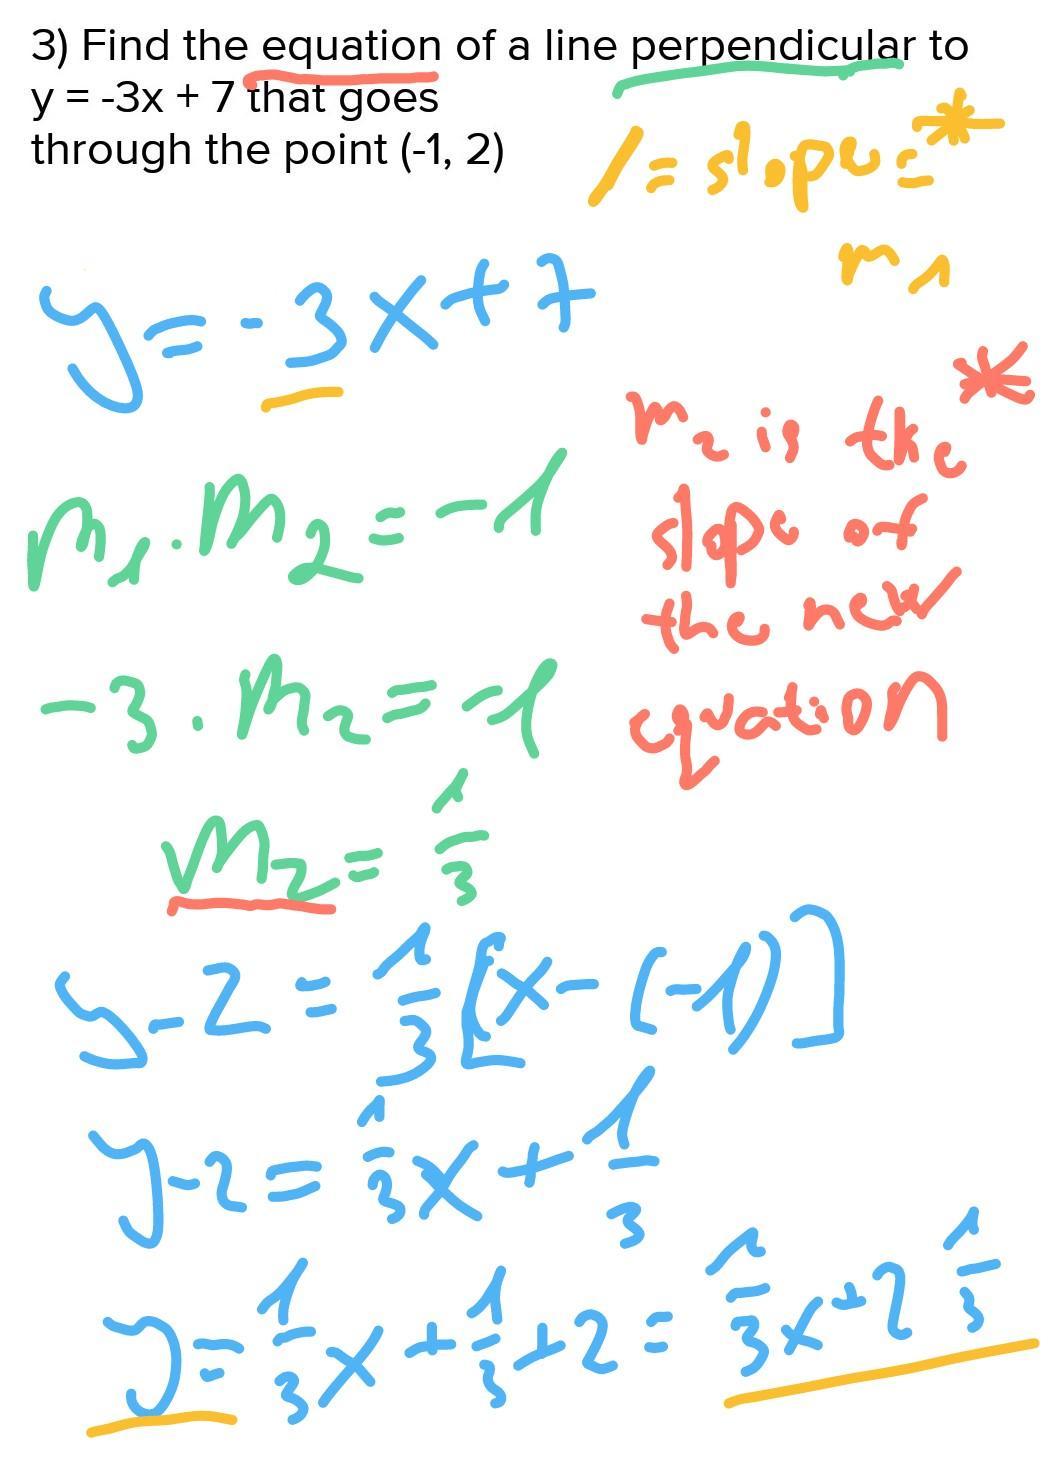 3) Find the equation of a line perpendicular to
y = -3x + 7 that goes
through the point (-1, 2)
/ = slope = *
m₁
y = -3x + 7
m₂ is the *
slope of
the new
equation
m₁ · m₂ = -1
-3 · m₂ = -1
m₂ = 1/3
y - 2 = 1/3 [x - (-1)]
y - 2 = 1/3 x + 1/3
y = 1/3 x + 1/3 + 2 = 1/3 x + 2 1/3